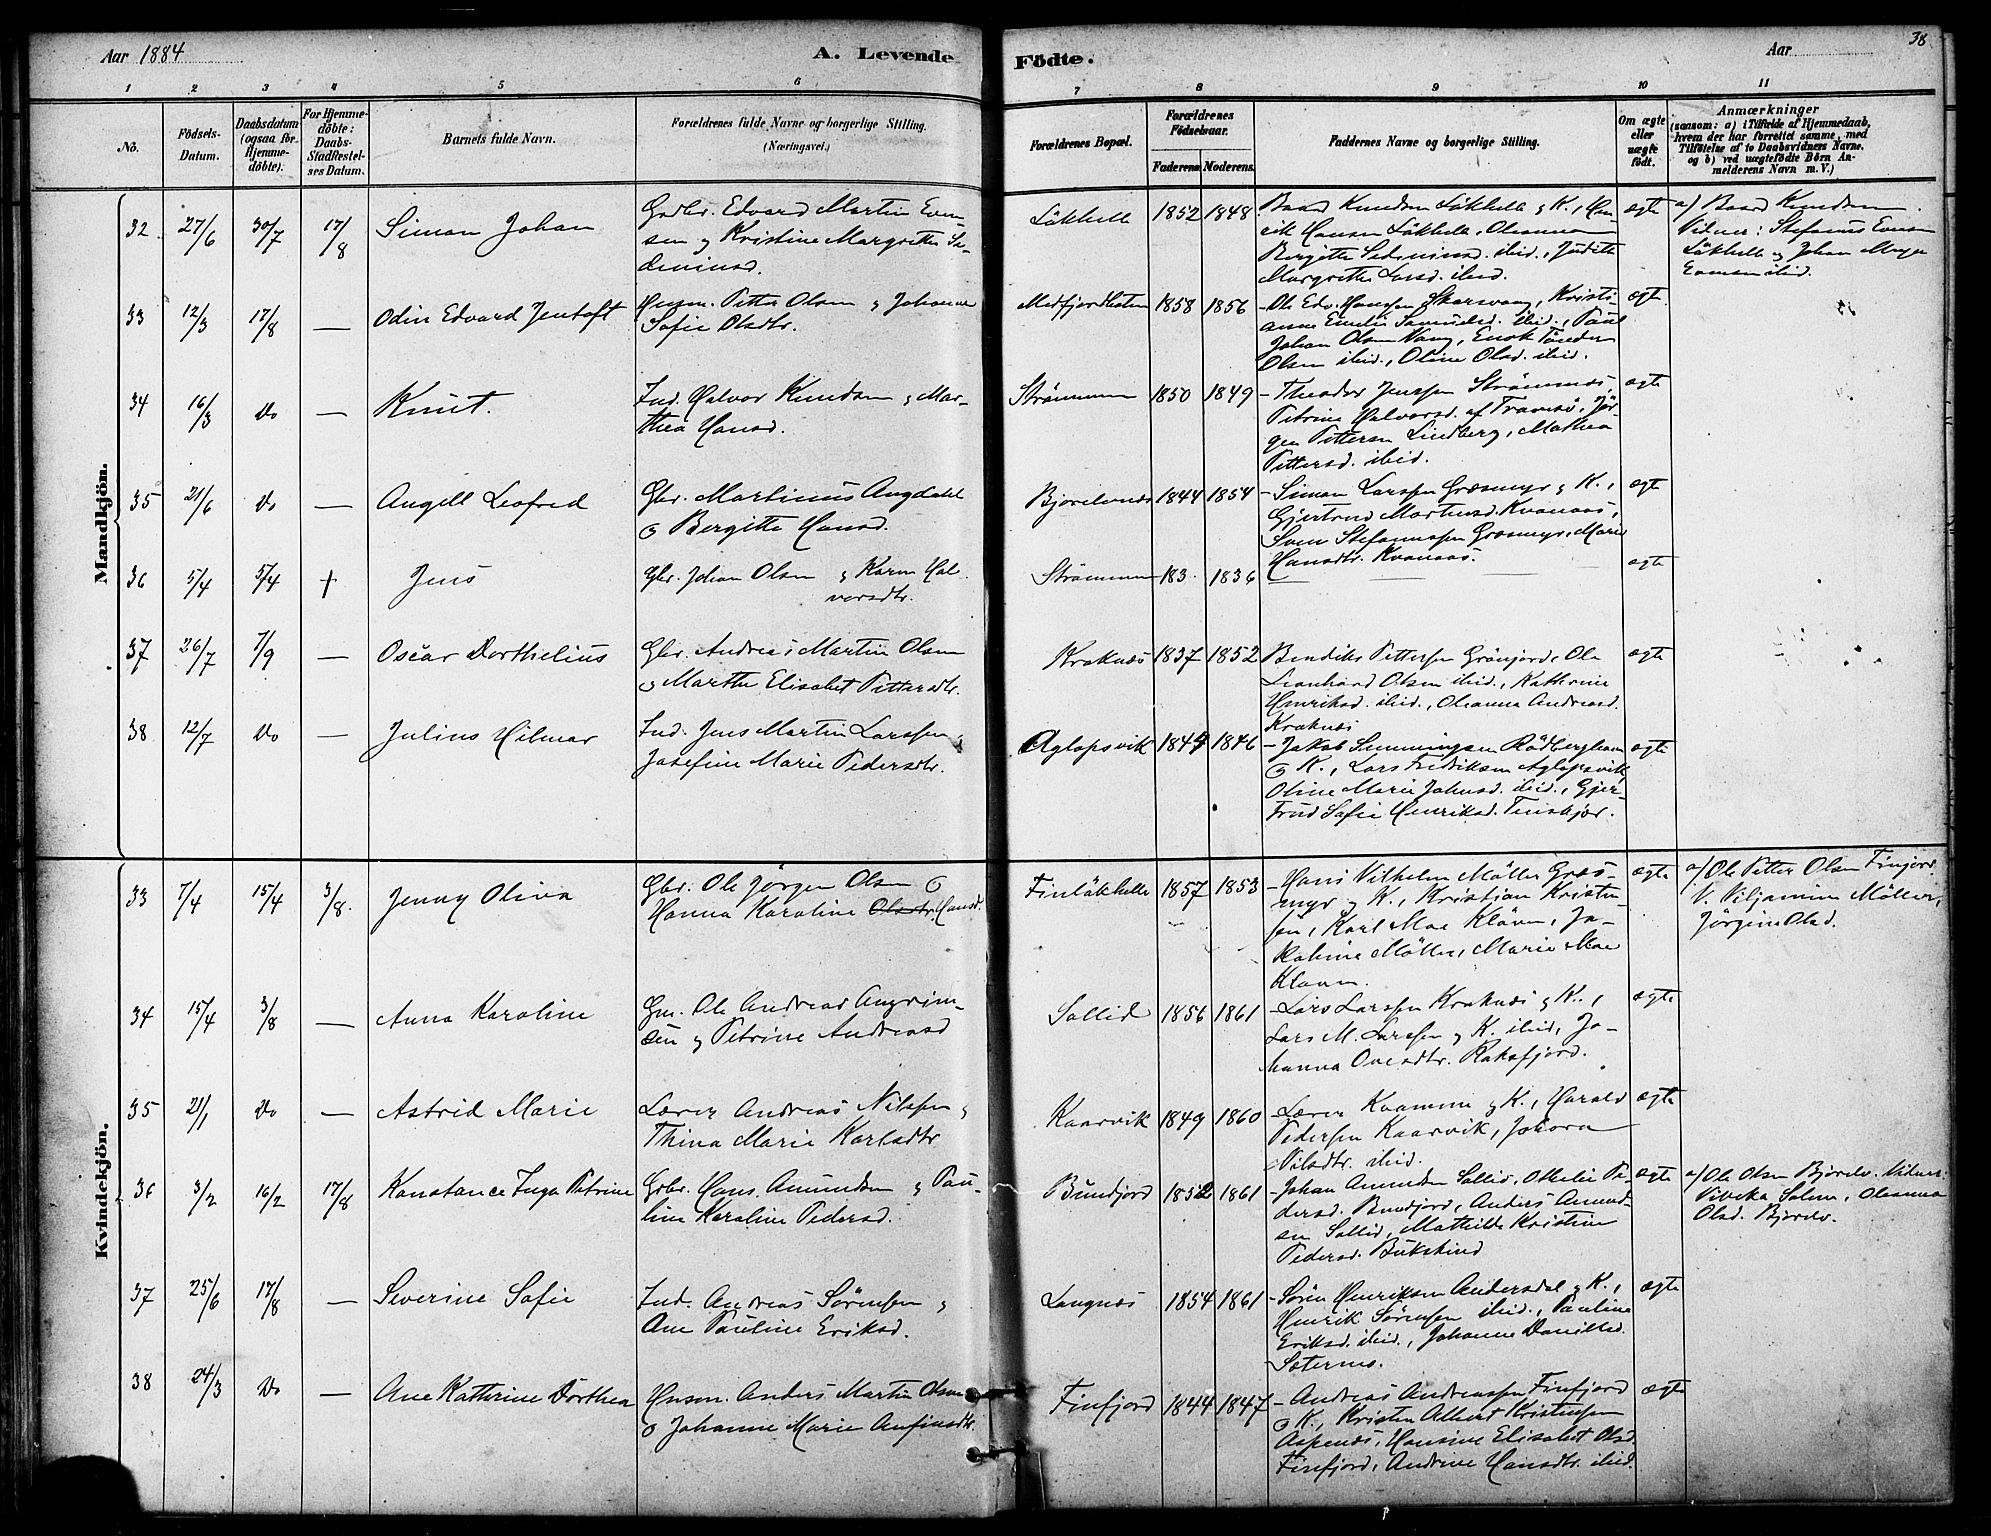 Aar 1884
A. Levende
Födte.
Aar
38
1 2 3 4 5 6 7 8 9 10 11
No.
Födsels-Datum.
Daabsdatum (ogsaa for Hjemme-döbte).
For Hjemme-döbte: Daabs-Stadfæstel-ses Datum.
Barnets fulde Navn.
Forældrenes fulde Navne og borgerlige Stilling.
(Næringsvei.)
Forældrenes Bopæl.
Forældrenes Födselsaar.
Faderens Moderens.
Faddernes Navne og borgerlige Stilling.
Om ægte eller uægte födt.
Anmærkninger
(saasom: a) i Tilfælde af Hjemmedaab,
hvem der har forrettet samme, med
Tilföielse af to Daabsvidners Navne.
og b) ved uægtefödte Börn An-
melderens Navn m. V.)
Mandkjön.
32 27/6 30/7 17/8 Simon Johan
Gaðbr. Edvard Martin Even-
sen og Kristine Margrethe Se-
deniusd.
Läkhelle 1852 1848
Baard Knudsen Läkhelle og K., Hen-
rik Hansen Läkhelle, Oleanna
Birgitte Sedeniusd. ibid., Judith
Margrethe Larsd. ibid.
ægte
a/ Baard Knudsen.
Vidner: Stefanus Evensen
Läkhelle og Johan Meyer
Evensen ibid.
33 12/3 17/8 — Odin Edvard Jentoft
Husm. Petter Olsen og Johanna
Sofie Olsdtr.
Medfjordbotn 1858 1856
Ole Edv. Hansen Skarsvaag, Kristi-
anne Emelie Samuelsd. ibid., Paul
Johan Olsen Vang, Enok Tönder
Olsen ibid., Oline Olsd. ibid.
ægte
34 16/3 Do — Knut.
Ind. Halvor Knudsen og Mar-
thea Hansd.
Strömmen 1850 1849
Theodor Jenssen Strömmnes,
Petrine Halvorsd. af Tromsö, Jör-
gen Pettersen Lindberg, Mathea
Pettersd. ibid.
ægte
35 21/6 Do — Angell Leofred
Gbr. Martinus Angdahl
og Bergitte Hansd.
Bjorelvnes 1844 1854
Simon Larssen Græsmyr og K.,
Gjertrud Martinsd. Kvanaas,
Sven Stefanussen Græsmyr, Marie
Hansdtr. Kvanaas.
ægte
36 5/4 5/4 + Jens
Gbr. Johan Olsen og Karen Hal-
vorsdtr.
Strömmen 183 1836
ægte
37 26/7 7/9 — Oscar Dorthelius
Gbr. Andreas Martin Olsen
og Marthe Elisabet Pettersdtr.
Kraknæs 1837 1852
Bendiks Pettersen Grönjord, Ole
Leonhard Olsen ibid., Kathrine
Henriksd. ibid., Oleanna Andreasd.
Kraknæs
ægte
38 12/7 Do — Julius Hilmar
Ind. Jens Martin Larssen og
Josefine Marie Pedersdtr.
Aglapsvik 1844 1846
Jakob Semmingsen Rödberghavn
og K., Lars Fredriksen Aglapsvik,
Oline Marie Johnsd. ibid., Gjer-
trud Sofie Henriksd. Tennskjær.
ægte
Kvindekjön.
33 7/4 15/4 3/8. Jenny Olina
Gbr. Ole Jörgen Olsen og
Hanna Karoline Olsdtr Hansd.
Finläkhelle 1857 1853
Hans Vilhelm Möller Græs-
myr og K., Kristian Kristen-
sen, Karl Moe Kläven, Ja-
kobine Möller, Marie Moe
Kläven.
ægte
a/ Ole Petter Olsen Finjord.
V. Viljamine Möller,
Jörgine Olsd.
34 15/4 3/8 — Anna Karoline
Gm. Ole Andreas Angrim-
sen og Petrine Andreasd
Sollid 1856 1861
Lars Larssen Kraknæs og K.,
Lars M. Larssen og K. ibid, Jo-
hanna Ovesdtr. Rakafjord.
ægte
35 21/1 Do — Astrid Marie
Lærer Andreas Nilssen og
Thina Marie Karlsdtr
Kaarvik 1849 1860
Lærer Kvamme og K., Harald
Pedersen Kaarvik, Johanna
Nilsdtr. ibid.
ægte
36 3/2 16/2 17/8 Konstance Inga Petrine
Gbr. Hans Amundsen og Pau-
line Karoline Pedersd.
Bundjord 1852 1861
Johan Amundsen Sollid, Othelie Pe-
dersd. Bundjord, Anders Amund-
sen Sollid, Mathilde Kristine
Pedersd. Bukskind
ægte
a/ Ole Olsen Bjorelv. Vidner:
Vibeka Solem, Oleanna
Olsd. Bjorelv.
37 25/6 17/8 — Severine Sofie
Ind. Andreas Sörensen og
Ane Pauline Eriksd.
Langnæs 1854 1861
Sören Henriksen Andersdal og K.,
Henrik Sörensen ibid., Pauline
Eriksd. ibid., Johanne Danielsd.
Sæternes.
ægte
38 24/3 Do — Ane Katherine Dorthea
Husm. Anders Martin Olsen
og Johanne Marie Anfinsdtr.
Finfjord 1844 1847
Andreas Andreassen Finfjord
og K., Kristen Albert Kristensen
Aspenæs, Hansine Elisabet Olsd.
Finfjord, Andrine Hansdtr. ibid.
ægte